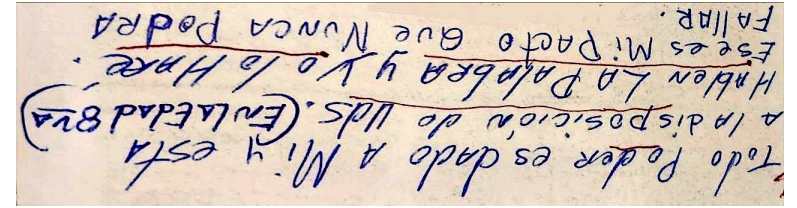 Todo Poder es dado A Mi, y estA
A lA disposición de Uds. (En lA Edad 8va)
Hablen LA PAlAbRA y Yo lo HARé.
Ese es Mi PActo Que NuncA PodRA
FAllAR.